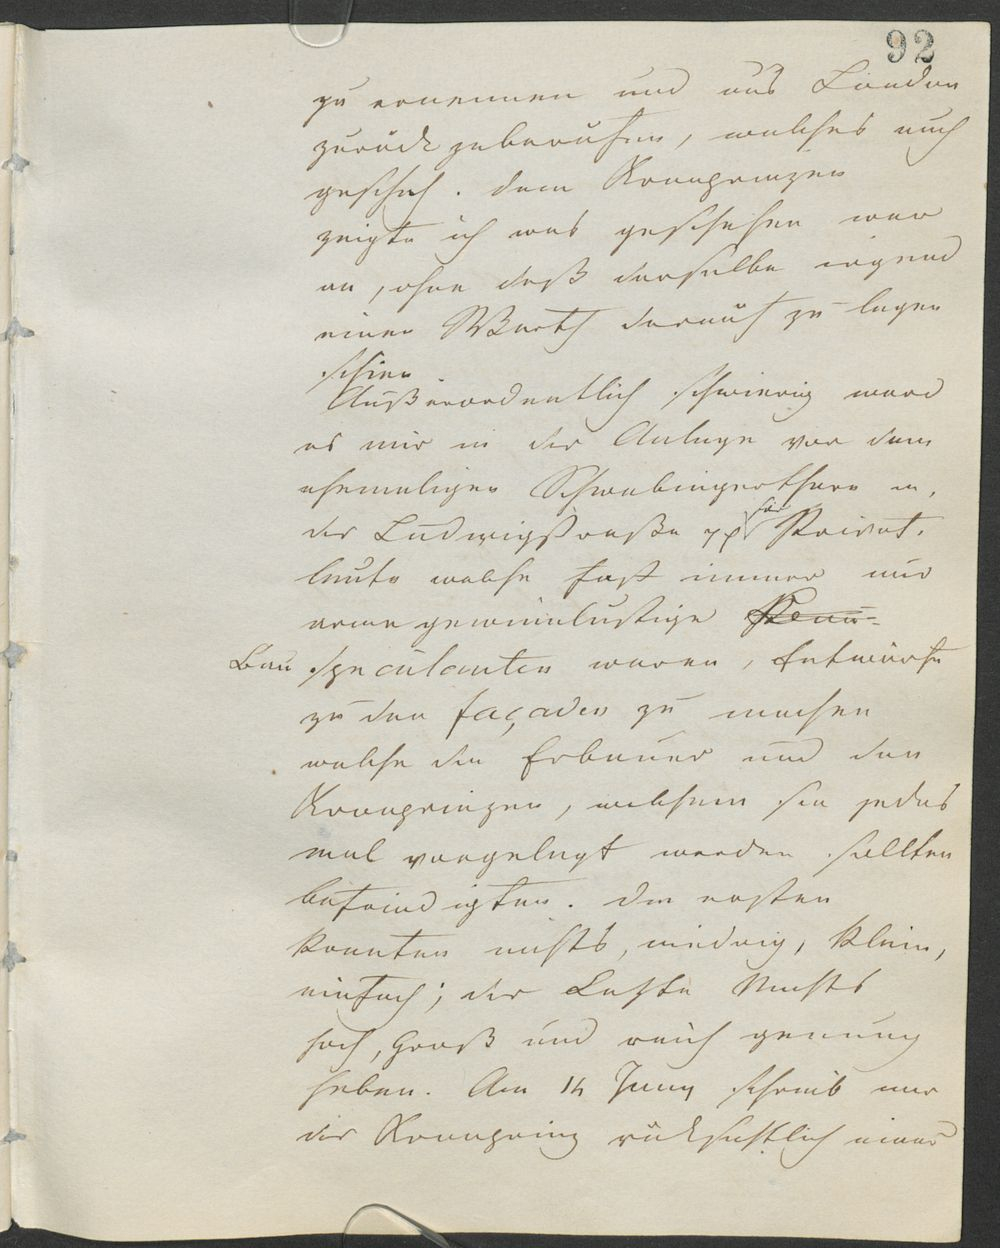 92
zu ernennen und aus London
zurück zuberufen, welches auch
geschah. dem Kronprinzen
zeigte ich was geschehen war
an, ohne daß derselbe irgend
einen Werth darauf zu legen
schien
Außerordentlich schwierig ward
es mir in der Anlage vor dem
ehemaligen Schwabingerthore u.
der Ludwigstraße pp für Privat-
leute welche fast immer nur
arme gewinnlustige
Bau speculanten waren, Entwürfe
zu den façaden zu machen
welche die Erbauer und den
Kronprinzen, welchem sie jedes
mal vorgelegt werden sollten
befriedigten. Die ersten
konnten nichts, niedrig, klein,
einfach; der Letzte Nichts
hoch, Groß und reich genung
haben. Am 14 Juny schrieb mir
der Kronprinz rücksichtlich einer